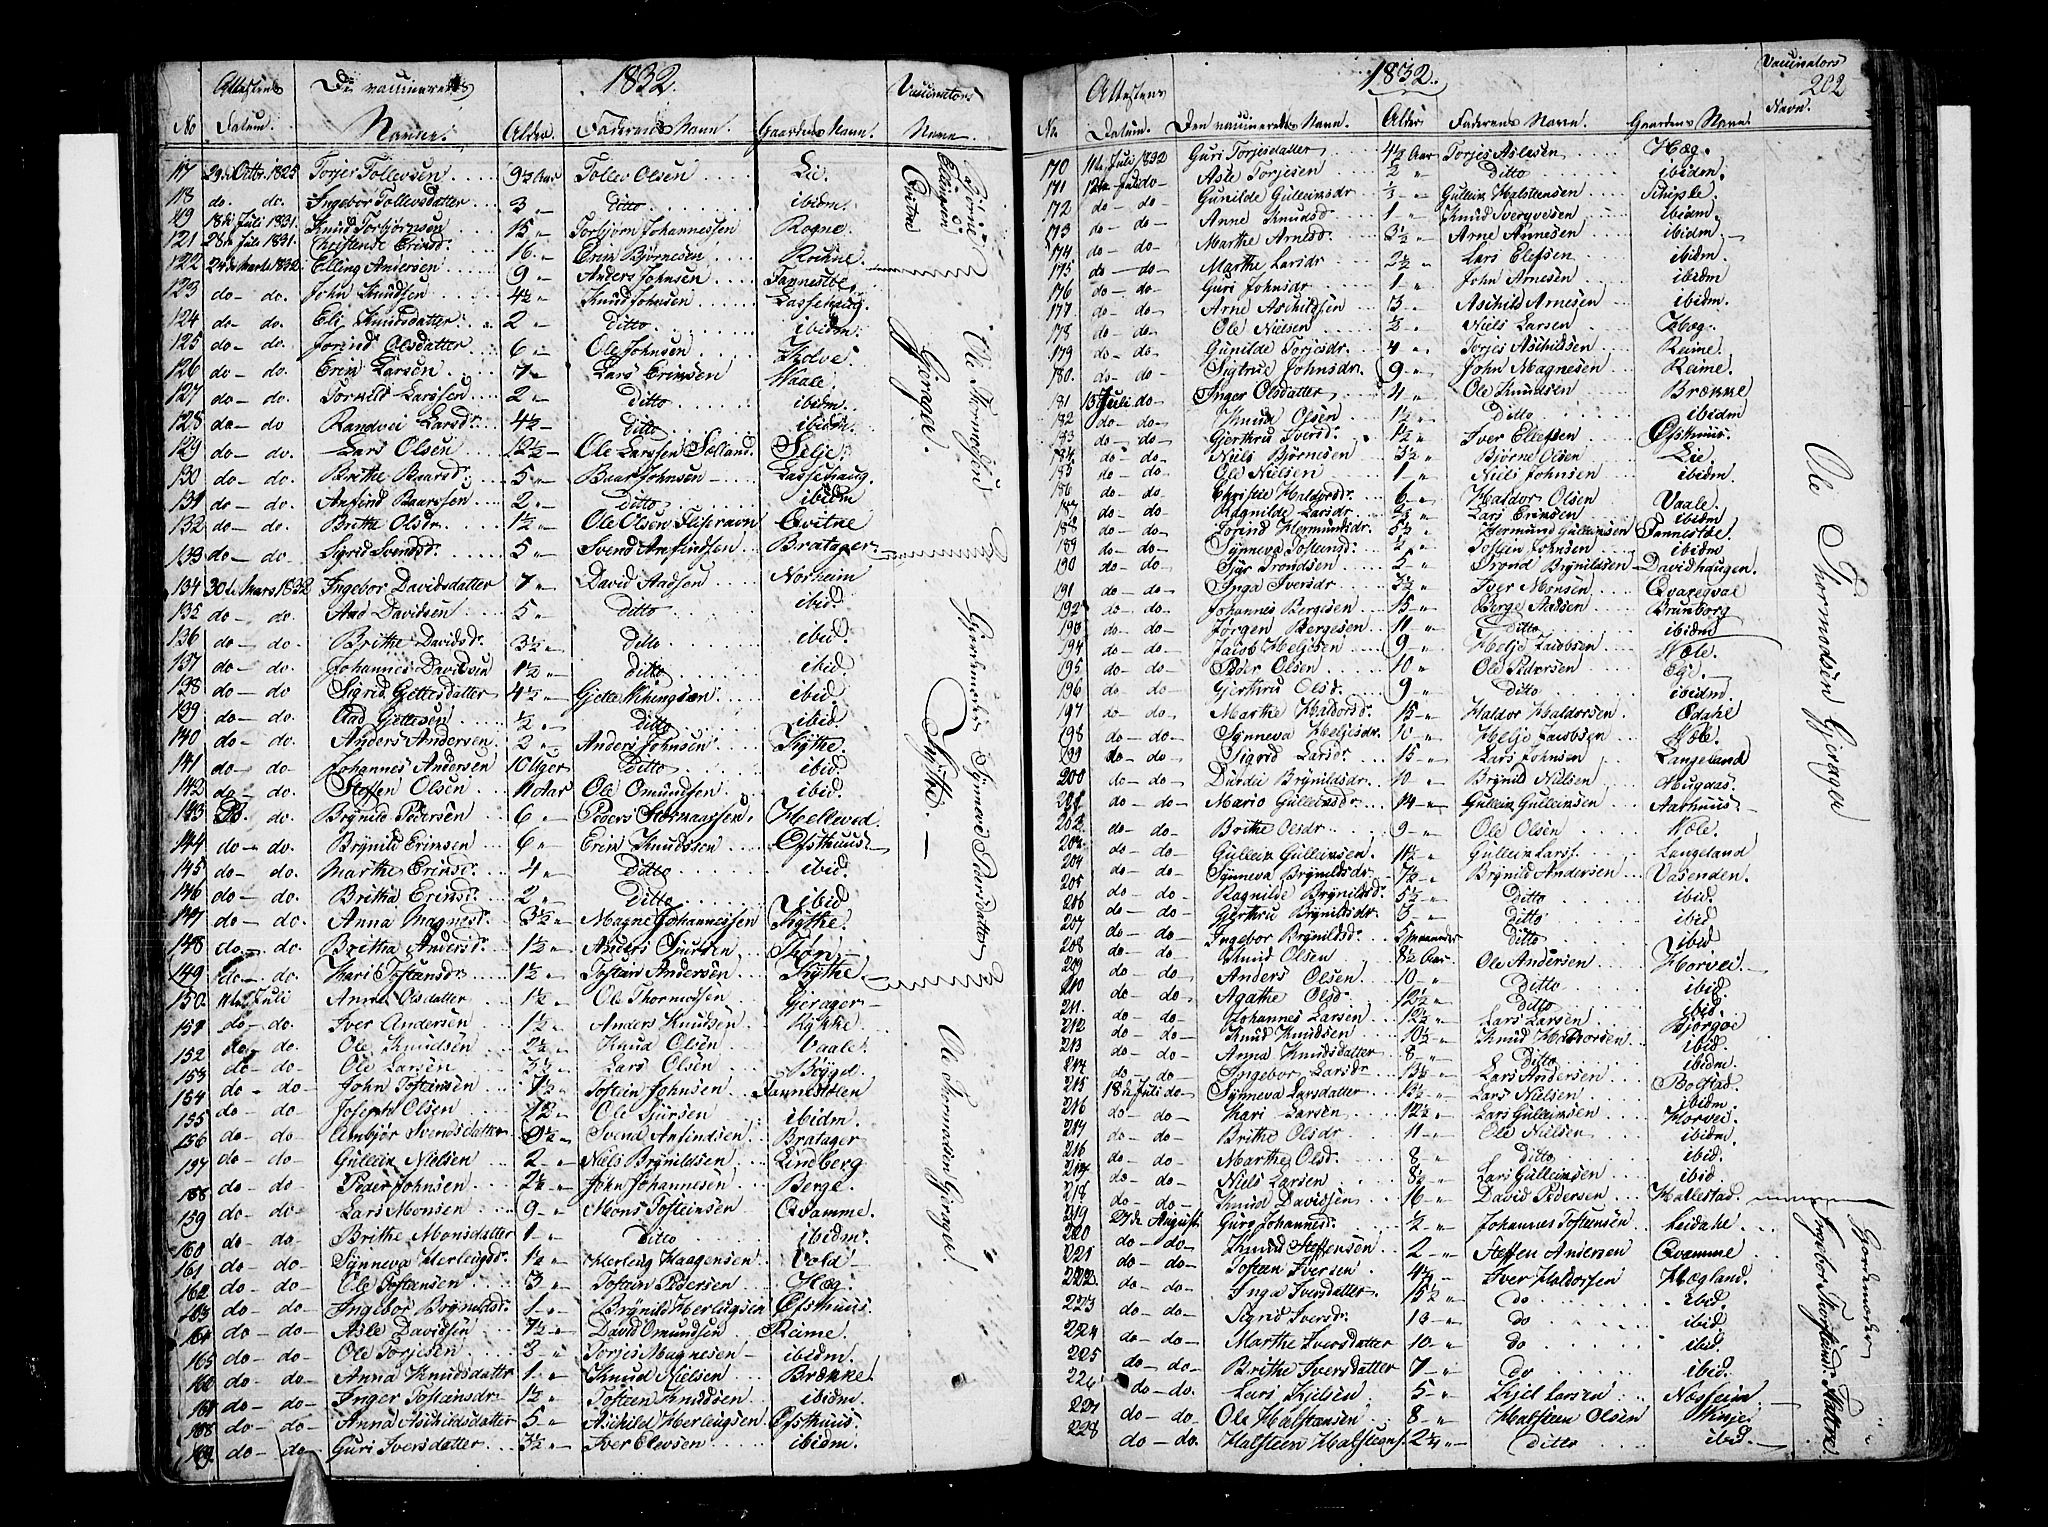 1832.
Attestens Datum. De vaccineredes Navne. Alder. Faderens Navn. Gaardens Navn. Vaccinators Navn
117 29de Octbr. 1825 Torjer Tollevsen 9½ Aar Tollev Olsen Lie.
118 do. do. Ingebor Tollevsdatter 3 " ditto ibidm.
119 18de Juli 1831. Knud Torbjørnsen 15 " Torbjørn Johannessen Rogne.
121 28de Juli 1831. Christense Erixsd. 16 " Erik Bjørnesen
122 24de Marts 1832 Elling Andersen 9 " Anders Johnsen
123 do - do. John Knudsen 4½ " Knud Johnsen Lassehaug.
124 do - do. Eli Knudsdatter 2 " ditto ibidm.
125 do - do. Jorand Olsdatter 6 " Ole Johnsen
126 do - do. Erik Larsen 7 " Lars Eriksen Waale.
127 do - do. Larssen 2 " ditto ibidm.
128 do - do Randvei Larsd. 4½ - ditto ibidm.
129 do - do. Lars Olsen 12½ - Ole Larssen Sælland. Selje.
130 do - do. Brithe Baarsd. 5 " Baar Johnsen Lassehaug.
131 do - do. Anfind Baarssen 2 " ditto ibidm
132 do - do. Brithe Olsdr. 1½ " Ole Olsen Qvitne
133 do - do. Sigrid Svendsd. 5 " Svend Anfindsen Bratager
134 30te Mars 1832 Ingebor Davidsdatter 7 " David Aadsen Norheim
135 do - do. Aad Davidsen 5 " ditto ibid.
136 do - do. Brithe Davidsd. 3½ " Ditto ibid.
137 do - do. Johannes Davidsen 1½ " ditto ibid.
138 do - do Sigrid Gjettesdatter 4½ " Gjette Vikingsen ibid
139 do - do. Aad Gjettesen ½ " ditto ibid.
140 do - do. Anders Andersen 2 " Anders Johnsen
141 do - do. Johannes Andersen 10 Uger Ditto ibid.
142 do - do. Steffen Olsen 11 Aar Ole Omundsen ibid.
143 do. do. Brynild Pedersen 6 " Hellevid.
144 do - do. Brynild Eriksen 6 " Erik Knudssen Ofsthuus
145 do - do. Marthe Eriksd. 4 " Ditto ibid.
146 do - do. Britha Eriksd. 2 " Ditto ibid
147 do - do. Anna Magnesd. 3½ " Magne Johannessen
148 do - do. Britha Andersd. 1½ " Anders
149 do - do. Kari Tostensdr. 1½ " Tosten Andersen
150 11te Juli Anna Olsdatter 1½ " Ole Thormodsen Gjerager
151 do - do. Iver Andersen 1½ " Anders Knudsen Rykke.
152 do - do. Ole Knudsen 2½ " Knud Olsen Vaale.
153 do - do. Ole Larsen 3½ " Lars Olsen
154 do - do - John Tosteinsen 1½ " Tostein Johnsen Fannestølen
155 do - do Joseph Olsen 1½ " Ole ibidm.
156 do - do Anbjør Svendsdatter Svend Anfindsen Bratager
157 do - do Gullein Nielsen 2 - " Niels Brynildsen Lindberg
158 do - do. Peder Johnsen 2½ " John Johannesen Berge.
159 do - do. Lars Monsen 9 - " Mons Tosteinsen Qvamme.
160 do - do - Brithe Monsdatter 1 - " Ditto ibidm.
161 do - do - Synneva Herleigsd. 1½ " Herleig Haagensen Vold
162 do - do - Ole Tostensen 3 " Tostein Pedersen Hæg.
163 do - do - Ingebor Brynildsd. 1 - " Brynild Herleigsen Ofsthuus.
164 do - do - Asle Davidsen 1½ " David Omundsen Reime.
165 do - do - Ole Torjesen 3 - " Torjes Magnesen ibidm.
166 do - do - Anna Knudsdatter 1 - " Knud Nielsen Brække.
167 do - do - Inger Tosteinsdr 1½ " Tosteen Knudsen ibidm.
168 do - do - Anna Aschildsdatter 5 " Aschild Herleigsen Ofsthuus
169 do - do - Guri Iversdatter 3½ " Iver Elevsen ibidm.
Bjørne Ellingsen Qvitne
Ole Thormodsen Gjerager.
Gjordemoder Synneve Pedersdatter
Ole Thormodsen Gjerager.
1832.
202
No. Attestens Datum. Den vaccineredes Navn. Alder Faderens Navn. Gaardens Navn. Vaccinators Navn.
170 11te Juli 1832 Guri Torjesdatter 4½ Aar Torjes Aslesen Hæg.
171 12te Juli do - Asle Torjesen 2 " Ditto ibidm.
172 do - do - Gunilde Gulleiksdr Gulleik Halstensen
173 do - do - Anne Knudsd. 1 " Knud ibidm.
174 do - do - Marthe Arnesd. 3½ " Arne Arnesen ibidm.
175 do - do - Marthe Larsdr. 2½ " Lars Elefsen ibidm
176 do - do - Guri Johnsdr 1 - " John Arnesen ibidm
177 do - do - Arne Aschildsen 3 " Aschild Arnesen ibidm.
178 do - do - Ole Nielsen ½ " Niels Larsen Hæg.
179 do - do - Gunilde Torjesdr. 4 " Torjes Aschildsen Reime.
180. do - do - Sigtrud Johnsdr. 9 - " John Magnesen Reime.
181 13de Juli do - Inger Olsdatter 4 " Ole Knudsen Brække
182 do - do - Knud Olsen 1½ " Ditto ibidm
183 do - do - Gjerthru Iversd. 1½ " Iver Ellefsen Ofsthuus.
184 do - do - Niels Bjørnesen 3½ " Bjørne Olsen Lie.
185 do - do - Ole Nielsen 1 " Niels Johnsen ibidm.
186 do - do. Christie Haldorsdr. 6 " Haldor Olsen Vaale.
187 do - do - Ragnilde Larsdr. Lars Eriksen ibidm
188 do - do - Jorand Hermundsdr. 5½ " Hermund Gulleiksen Fannestøe.
189 do - do - Synneva Tosteinsd. Tostein Johnsen ibidm.
190 do - do - Trondsen Trond Brynildsen Davidhaugen.
191 do - do - Inga Iversdr 3½ " Iver Monsen
192 do - do - Johannes Bergesen 15 " Berge Aadsen Brunborg
193 do - do - Jørgen Bergesen 11 - " Ditto ibidm
194 do - do - Jacob Heljesen 9 " Helje Jacobsen Næle.
195 do - do - Peder Olsen 10 " Ole Pedersen
196 do - do - Gjerthru Olsd. 9 " ditto ibidm
197 do - do - Marthe Haldorsd. 15 - " Haldor Haldorsen. Ødahl
198 do - do - Synneva Heljesdr. 10 " Helje Jacobsen Næle.
199 do - do - Sigrid Larsd. 15 " Lars Johnsen Langeland
200 do - do - Durdei Brynildsdr. 10 - " Brynild Nielsen Mugaas.
201 do - do - Maria Gulleiksdr. 14 - " Gulleik Gulleiksen. Aarhuus
202. do - do - Brithe Olsdr 9 - " Ole Olsen Næle.
203. do - do - Gullein Gulleinsen. 11½ - " Gullein Larss. Langeland
204 do - do - Synneva Brynildsdr. 7½ " Brynild Andersen Vasenden.
205 do - do - Ragnilde Brynildsd. 5½ " Ditto ibid.
206 do - do - Gjerthru Brynildsdr. 3 - " Ditto ibid
207 do - do - Ingebor Brynildsd. 5 maaneder Ditto ibid
208 do - do - Knud Olsen 8½ Aar. Ole Andersen Horvei.
209 do - do - Anders Olsen 10 - Ditto ibid.
210 do - do - Agathe Olsd. 12½ " Ditto ibid.
211. do - do - Johannes Larsen 12½ " Lars Larsen Bjørgøe
212 do - do - Knud Knudsen 10½ " Knud Haldorsen ibid.
213 do - do - Anna Knudsdatter 8 - " Ditto ibidm.
214 do - do - Ingebor Larsdr 13½ " Lars Andersen Bolstad.
215 18de Juli do - Synneva Larsdatter 13½ " Lars Nielsen ibidm.
216 do - do - Kari Larsen 12½ " Lars Gulleinsen Horvei
217 do - do - Brithe Olsdr 11 - " Ole Nielsen ibidm.
216 do - do - Marthe Olsd. 8 " ditto ibid.
217 do - do - Niels Larsen 8½ " Lars Gulleinsen ibid
218 do - do - Knud Davidsen 16 " David Pedersen Hallestad.
219 27de August Guro Johannesd. ½ " Johannes Tosteensen Leidahl
220 do - do - Knud Steffensen 2 - " Steffen Andersen Qvamme
221 do - do - Tosten Iversen 4½ - Iver Haldorsen Hægland.
222 do - do - Inga Iversdatter 15½ " do ibid.
223 do - do - Sigrid Iversdr. 13 - " do ibid
224 do - do - Marthe Iversdatter 10 - " do ibid.
225 do - do - Brithe Iversdatter 7 - " do ibid.
226 do - do. Lars Kjelsen 5 - " Kjel Larsen Nesheim
227 do - do - Ole Halstensen 8 - " Halsteen Olsen Winje
228 do - do. Halsteen Halsteens. 2¼ " ditto ibid.
Ole Thormodsen Gjerager
Gjordemoder
Ingebor Torsteinsd. Hatre